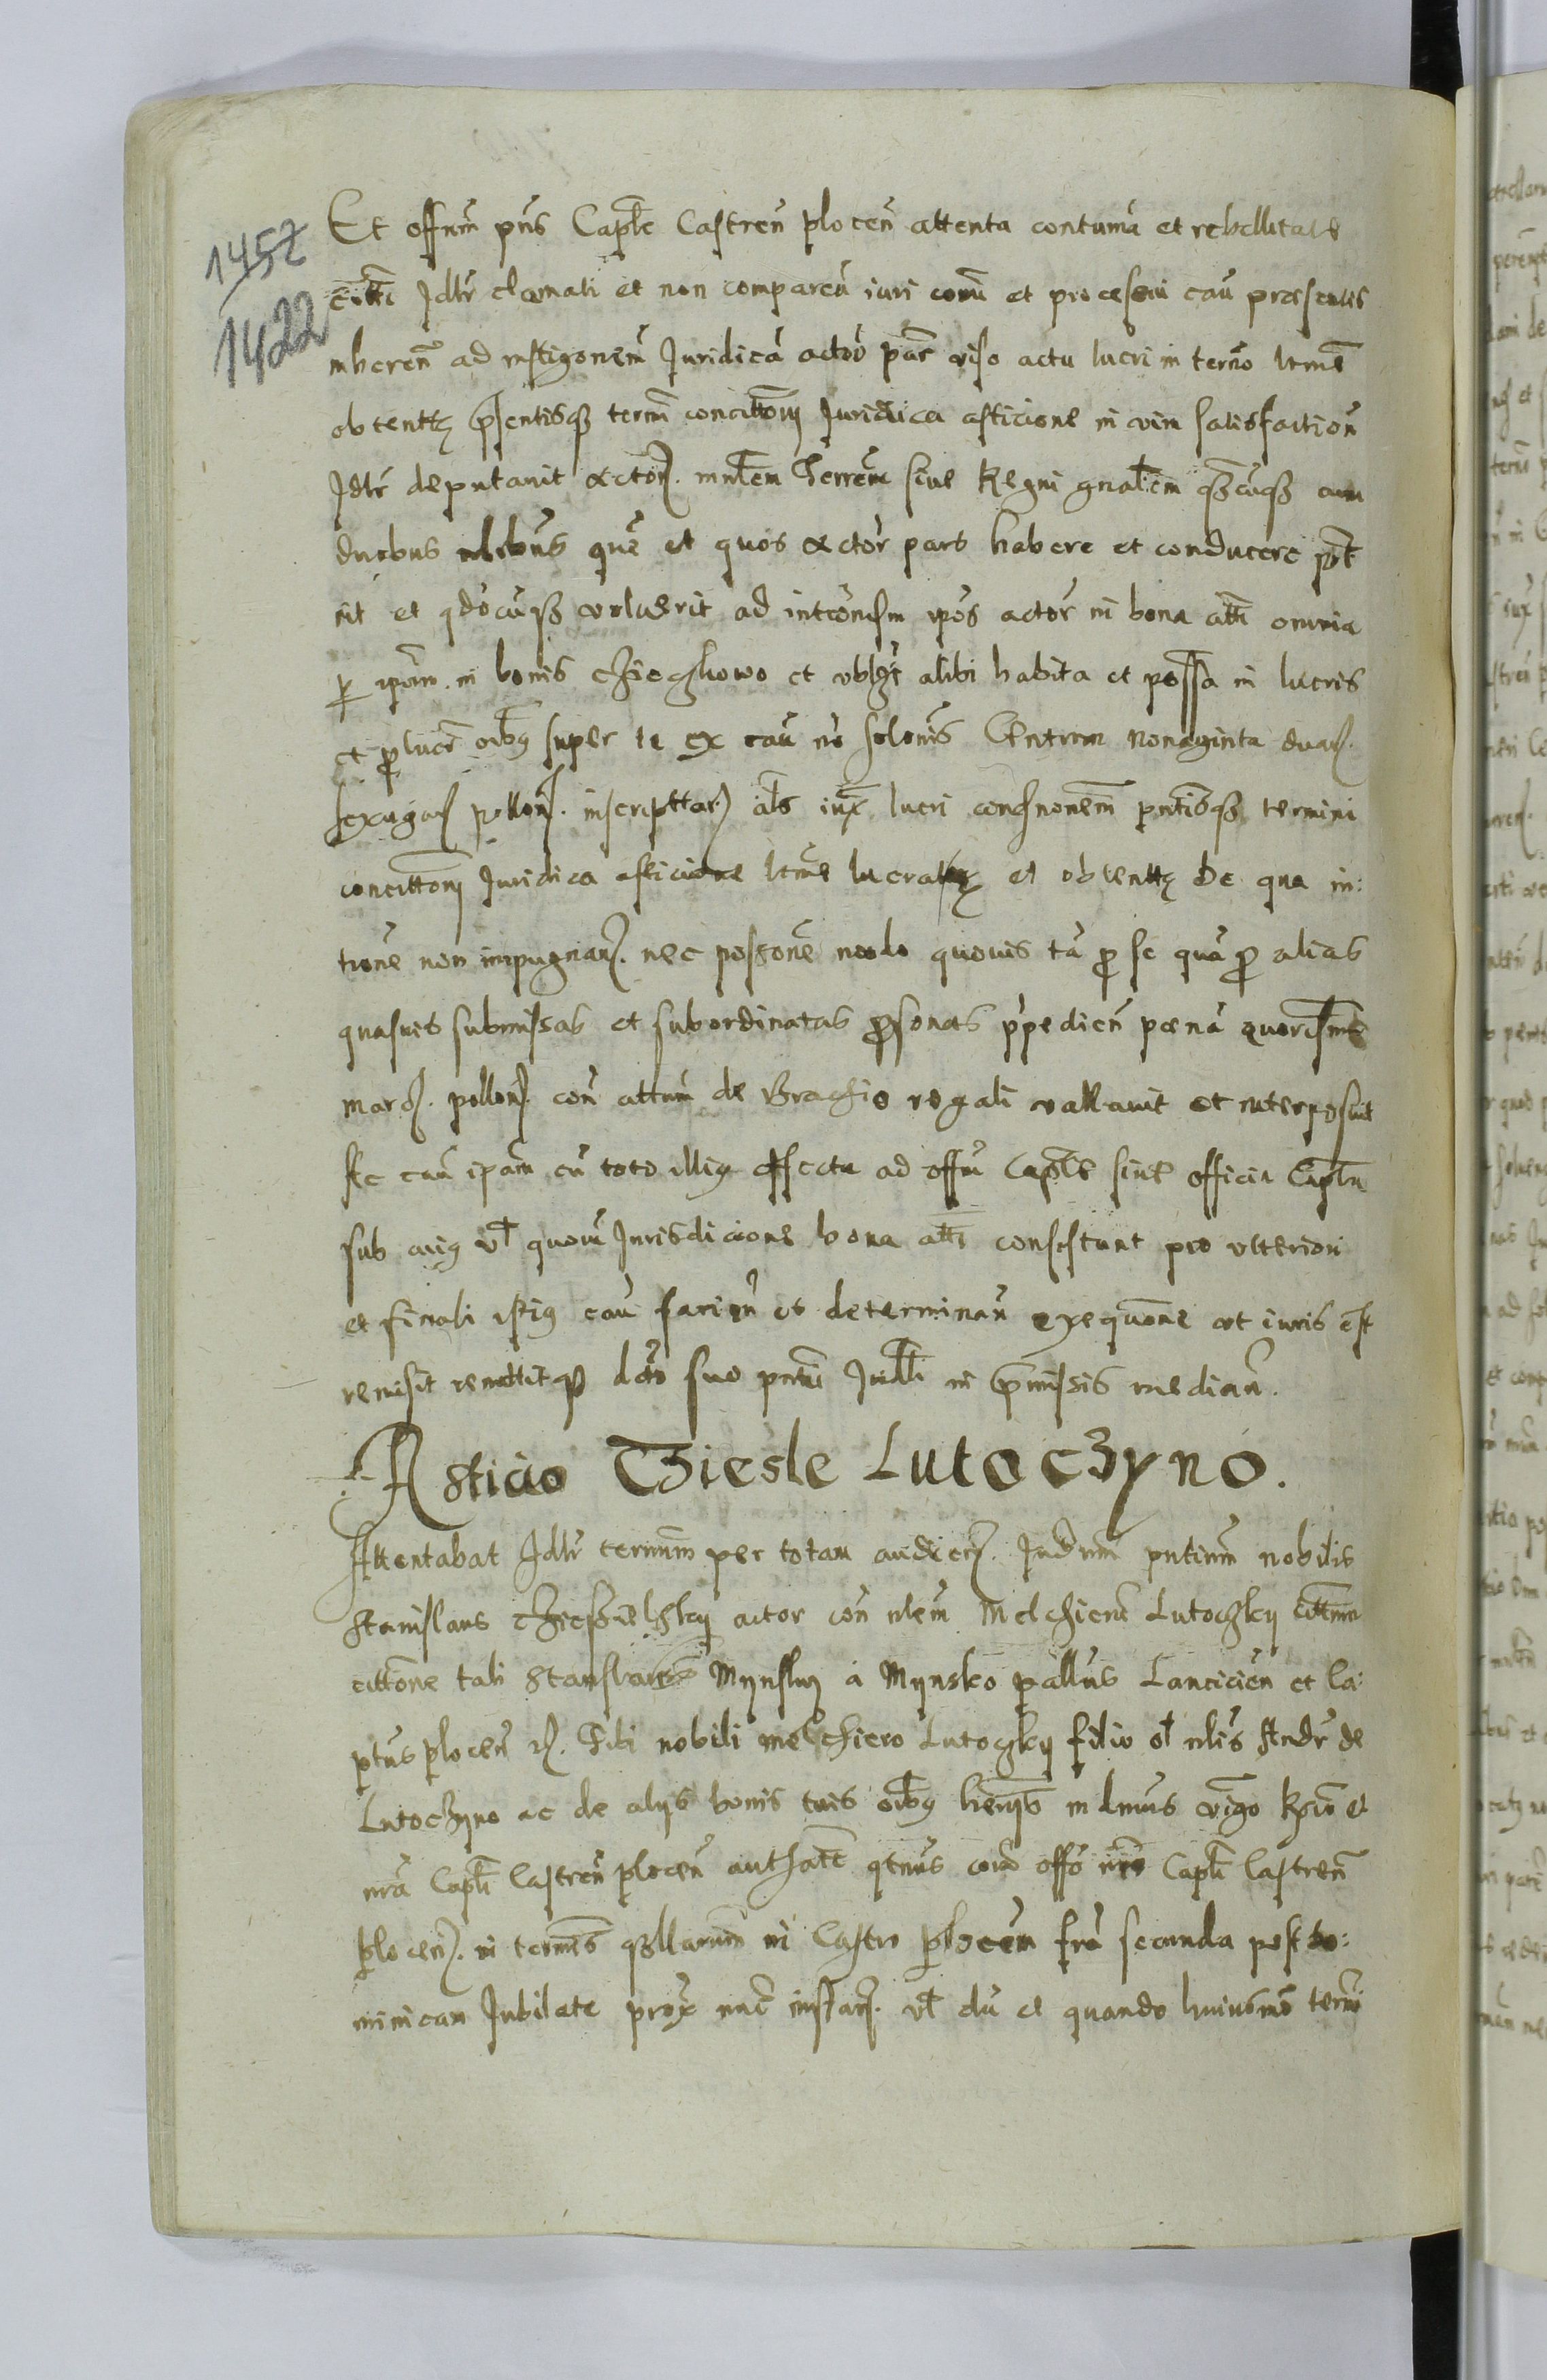 1457
1422
Et offum pns Caple Castren plocen attenta contuma et rebellitate
citti Jdlr clamati et non comparen iuri conu et processui cau præsentis
inheren ad instigonem Juridica actor par viso actu lucri in termo ltme
obtentt presentisq termi concittonis Juridica asticione in vim satisfaction
Jdlr deputavit actori mnlem Terrem sive Regni gnalem qzcuqz cum
duobus nlibus que et quos actor pars habere et conducere pot
rit et qdocuqz voluerit ad intronism ipos actor in bona atti omnia
per ipum in bonis et ubligt alibi habita et possa in lucris
et pro lucr oibus super te ex cau no solonis Centum nonaginta duar
sexagar pollon inscripttar als iux lucri condnonem pntisqz termini
concittonis Juridica asticione ltme lucratt et obtentt De qua in:
trone non impugnan nec possone modo quovis ta pro se qua pro alias
quasuis submissas et subordinatas personas ppedien poena
marc pollon con attum de Brachio regali vallavit et interposuit
Ac cau ipam cu toto illius effectu ad offm Caple sive officia Caplu
sub cuius vl quoru Jurisdicione bona atti consistunt pro ulteriori
et finali istius cau farien et determinan exequone ut iuris est
remisit remittitqz dcto suo pntis Judlli in premissis median.
Asticio Cziesle Lutoczyno.
Attentabat Jdlr terminum per totam audien Judium pntium nobilis
Stanislaus actor con nlem Melchiere Lutoczky cittum
cittone tali Stanislaus Mynsky a Mynsko pallus Lancicien et Ca:
ptus plocen Tibi nobili Melchiero Lutoczky filio ol nlis Andr de
Lutoczyno ac de alys bonis tuis oibus in dmus
nra Capli Castren plocen authate qtnus cora offo nro Capli Castren
plocen in termis qrllarum in Castro plocen fra secunda post do:
minicam Jubilate prox nuc instan vl du et quando huiusmo termi